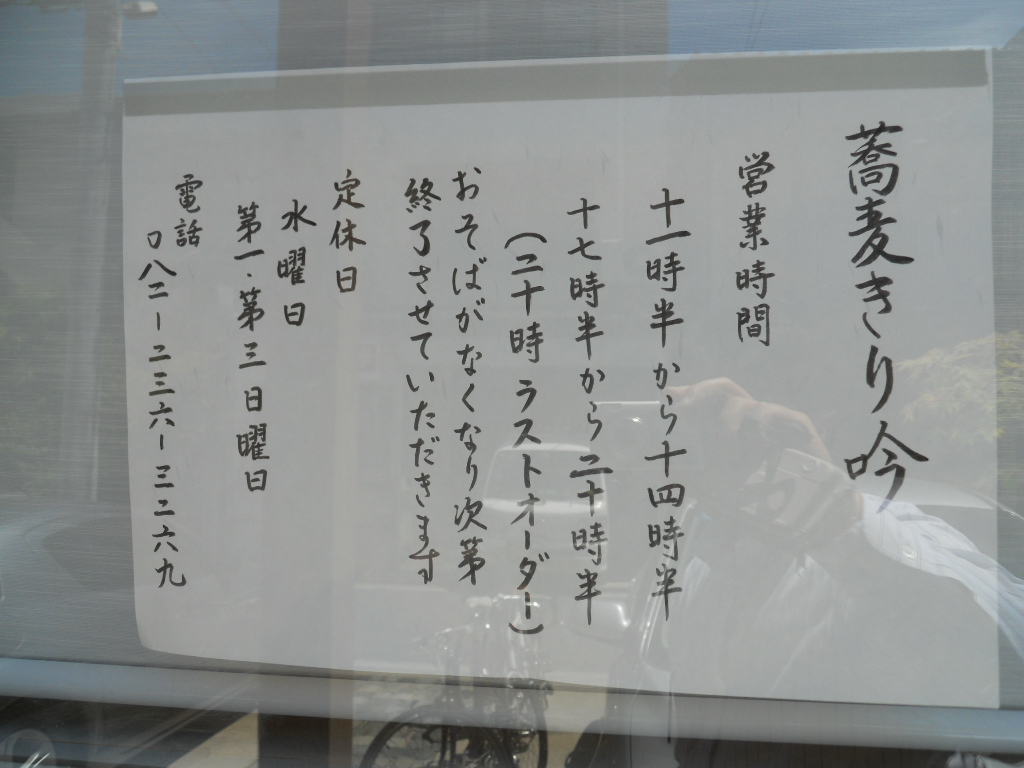 蕎麦きり吟
営業時間
十一時半から十四時半
十七時半から二十時半
(二十時ラストオーダー)
おそばがなくなり次第
終了させていただきます
定休日
水曜日
第一・第三日曜日
電話
〇八二ー二三六ー三二六九